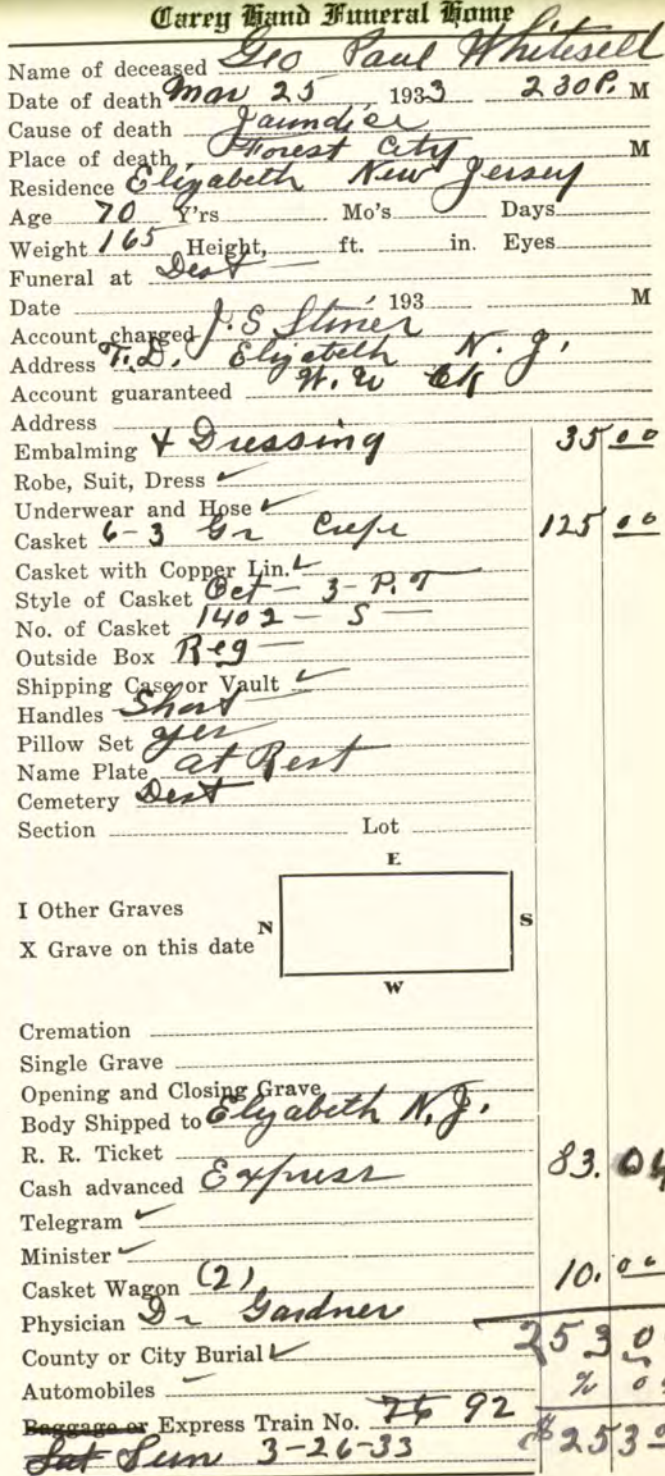 Carey Hand Funeral Home
Name of deceased Geo Paul Whitesell
Date of death Mar 25, 1933 230 P. M
Cause of death Jaundice
Place of death, Forest City M
Residence Elizabeth New Jersey
Age 70 Y'rs Mo's Days
Weight 165 Height, ft. in. Eyes
Funeral at Dest
Date , 193 M
Account charged J. S Stiner
Address F.D. Elizabeth N. J.
Account guaranteed W. W Ck
Address
Embalming & Dressing 35 00
Robe, Suit, Dress ✓
Underwear and Hose ✓
Casket 6-3 Gr Crepe 125 00
Casket with Copper Lin. ✓
Style of Casket Oct - 3 - P. T
No. of Casket 1402 - S -
Outside Box Reg -
Shipping Case or Vault ✓
Handles Short
Pillow Set yes
Name Plate at Rest
Cemetery Dest
Section Lot
E
I Other Graves
N S
X Grave on this date
W
Cremation
Single Grave
Opening and Closing Grave
Body Shipped to Elizabeth N. J.
R. R. Ticket
Cash advanced Express 83. 04
Telegram ✓
Minister ✓
Casket Wagon (2) 10. 00
Physician Dr Gardner
County or City Burial ✓ 253 0
Automobiles
Baggage or Express Train No. 76 92 $253
Sat Sun 3-26-33